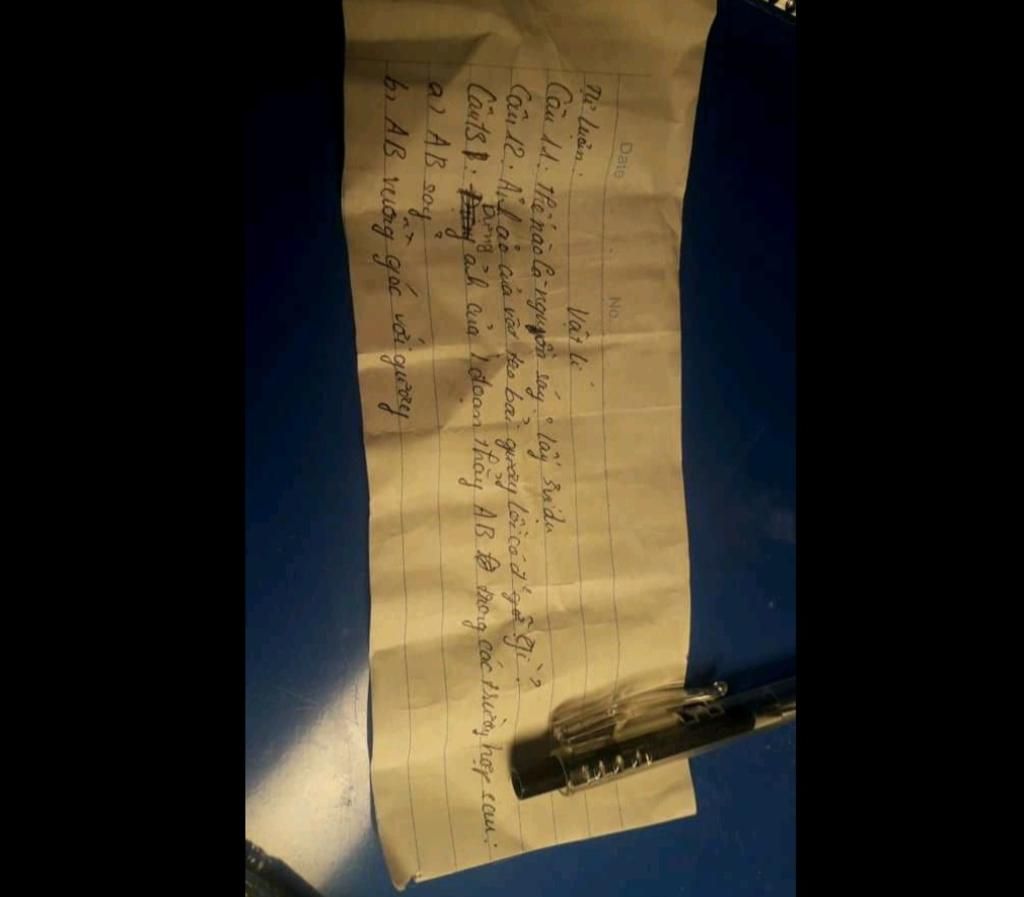 Date No.
Vật lí
Tự luận.
Câu 11. Thế nào là nguồn sáng? lấy 3 ví dụ
Câu 12. Ảnh ảo của vật tạo bởi gương lồi có đ² gì?
Câu 13: Dựng ảnh của 1 đoạn thẳng AB trong các trường hợp sau:
a) AB song
b) AB vuông góc với gương